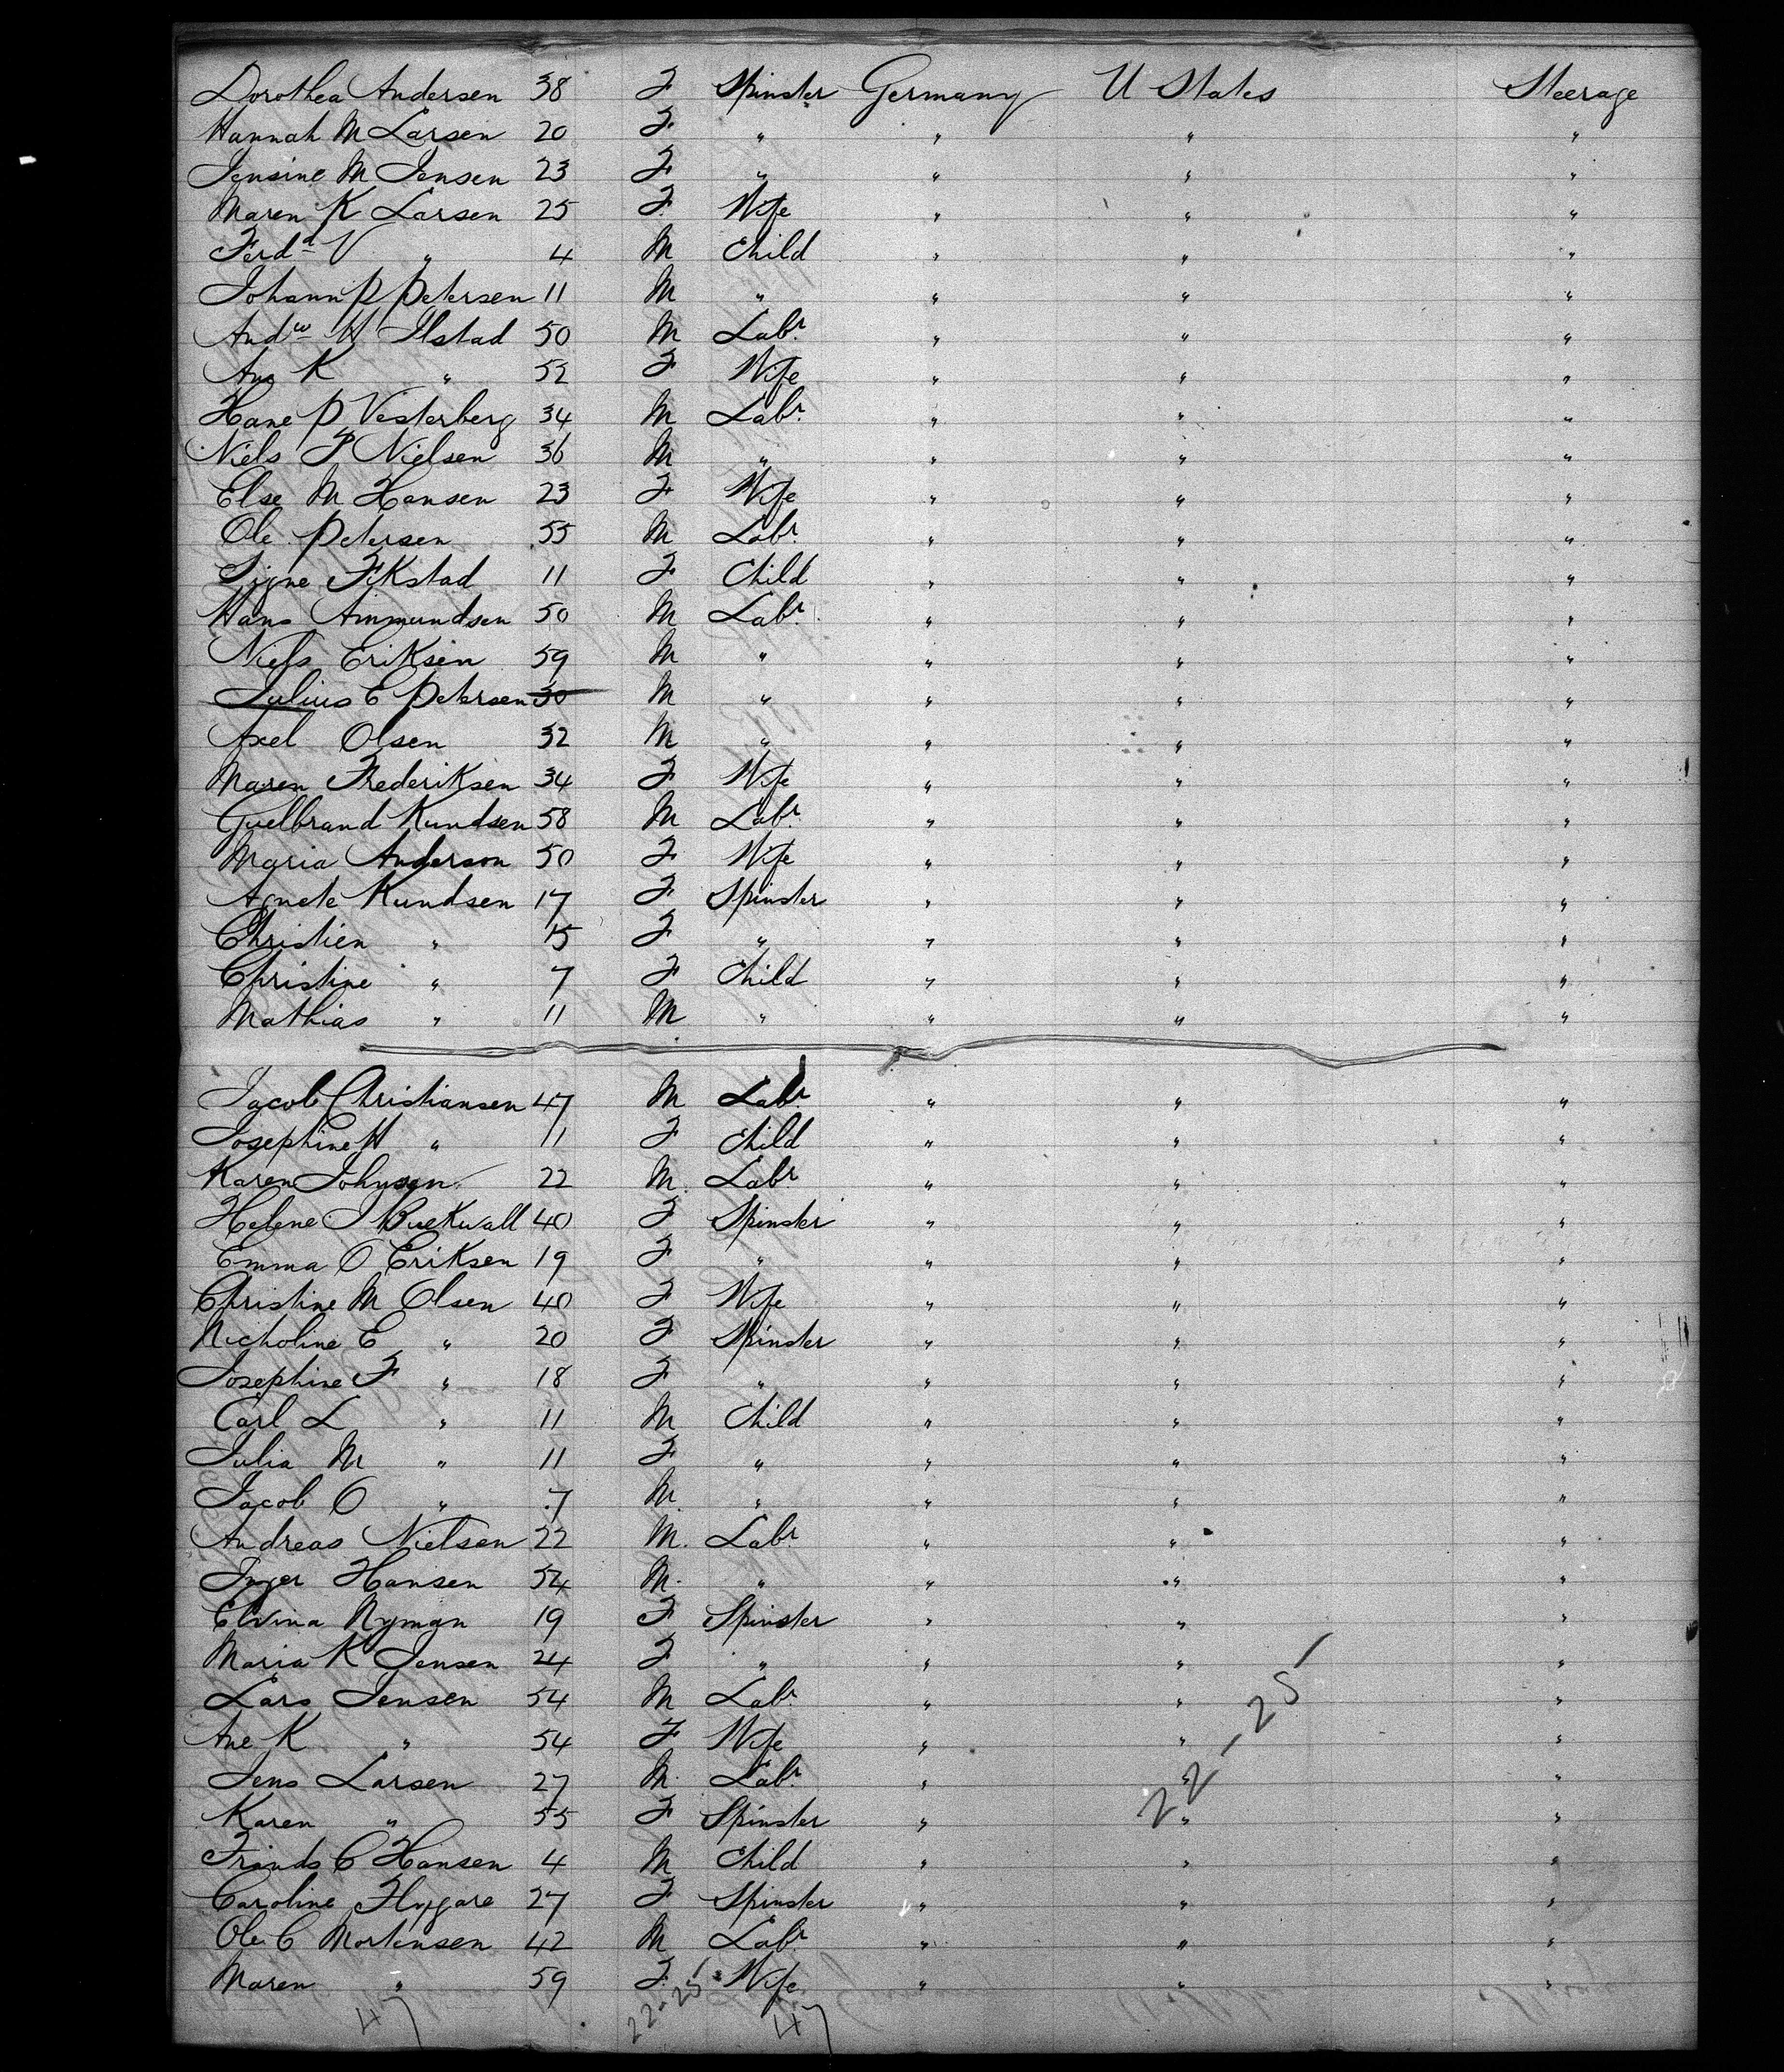 Dorothea Andersen 38 F Spinster Germany U States Steerage
Hannah M Larsen 20 F " " " "
Jensine M Jensen 23 F " " " "
Maren K Larsen 25 F Wife " " "
Ferdd V " 4 M Child " " "
Johann P Petersen 11 M " " " "
Andw H Ilstad 50 M Labr " " "
Ane K " 52 F Wife " " "
Hane P Vesterberg 34 M Labr " " "
Niels P Nielsen 36 M " " " "
Else M Hansen 23 F Wife " " "
Ole Petersen 55 M Labr " " "
Signe Fikstad 11 F Child " " "
Hans Ammundsen 50 M Labr " " "
Niels Eriksen 59 M " " " "
Julius E Petersen 30 M " " " "
Axel Olsen 32 M " " " "
Maren Frederiksen 34 F Wife " " "
Guelbrand Kundsen 58 M Labr " " "
Maria Anderson 50 F Wife " " "
Agnete Kundsen 17 F Spinster " " "
Christien " 15 F " " " "
Christine " 7 F Child " " "
Mathias " 11 M " " " "
Jacob Christiansen 47 M Labr " " "
Josephine H " 11 F Child " " "
Karen Johnsen 22 M Labr " " "
Helene J Buekwall 40 F Spinster " " "
Emma O Eriksen 19 F " " " "
Christine M Olsen 40 F Wife " " "
Nicholine E " 20 F Spinster " " "
Josephine F " 18 F " " " "
Carl L " 11 M Child " " "
Julia M " 11 F " " " "
Jacob O " 7 M " " " "
Andreas Nielsen 22 M Labr " " "
Inger Hansen 54 M " " " "
Elvina Nyman 19 F Spinster " " "
Maria K Jensen 24 F " " " "
Lars Jensen 54 M Labr " " "
Ane K " 54 F Wife " " "
Jens Larsen 27 M Labr " " "
Karen " 55 F Spinster " " "
Frands C Hansen 4 M Child " " "
Caroline Flygare 27 F Spinster " " "
Ole C Mortensen 42 M Labr " " "
Maren " 59 F Wife " " "
22-25
47 22-25 47